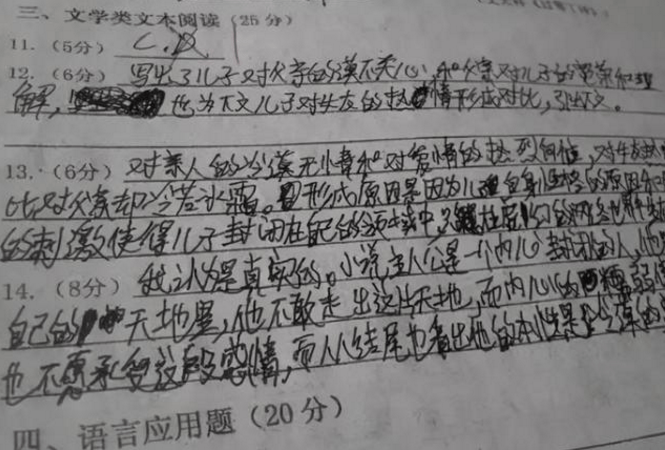 三、文学类文本阅读（25分）
11.（5分） C.D
12.（6分） 写出了儿子对父亲的冷漠不关心，和父亲对儿子的宽荣和理
解，也为下文儿子对失友的热情形成对比，引出下文。
13.（6分） 对亲人的冷漠无情和对爱情的热烈向往，对失友热
比对父亲却冷若冰霜。形成原因是因为儿子自身性格的原因和
的刺激使得儿子封闭在自己的领域中
14.（8分） 我认为是真实的。小说主人公是一个内心封闭的人，他
自己的天地里，他不敢走出这片天地，而内心的
也不愿承受这段感情，而从结尾也看出他的本性是
四、语言应用题（20分）